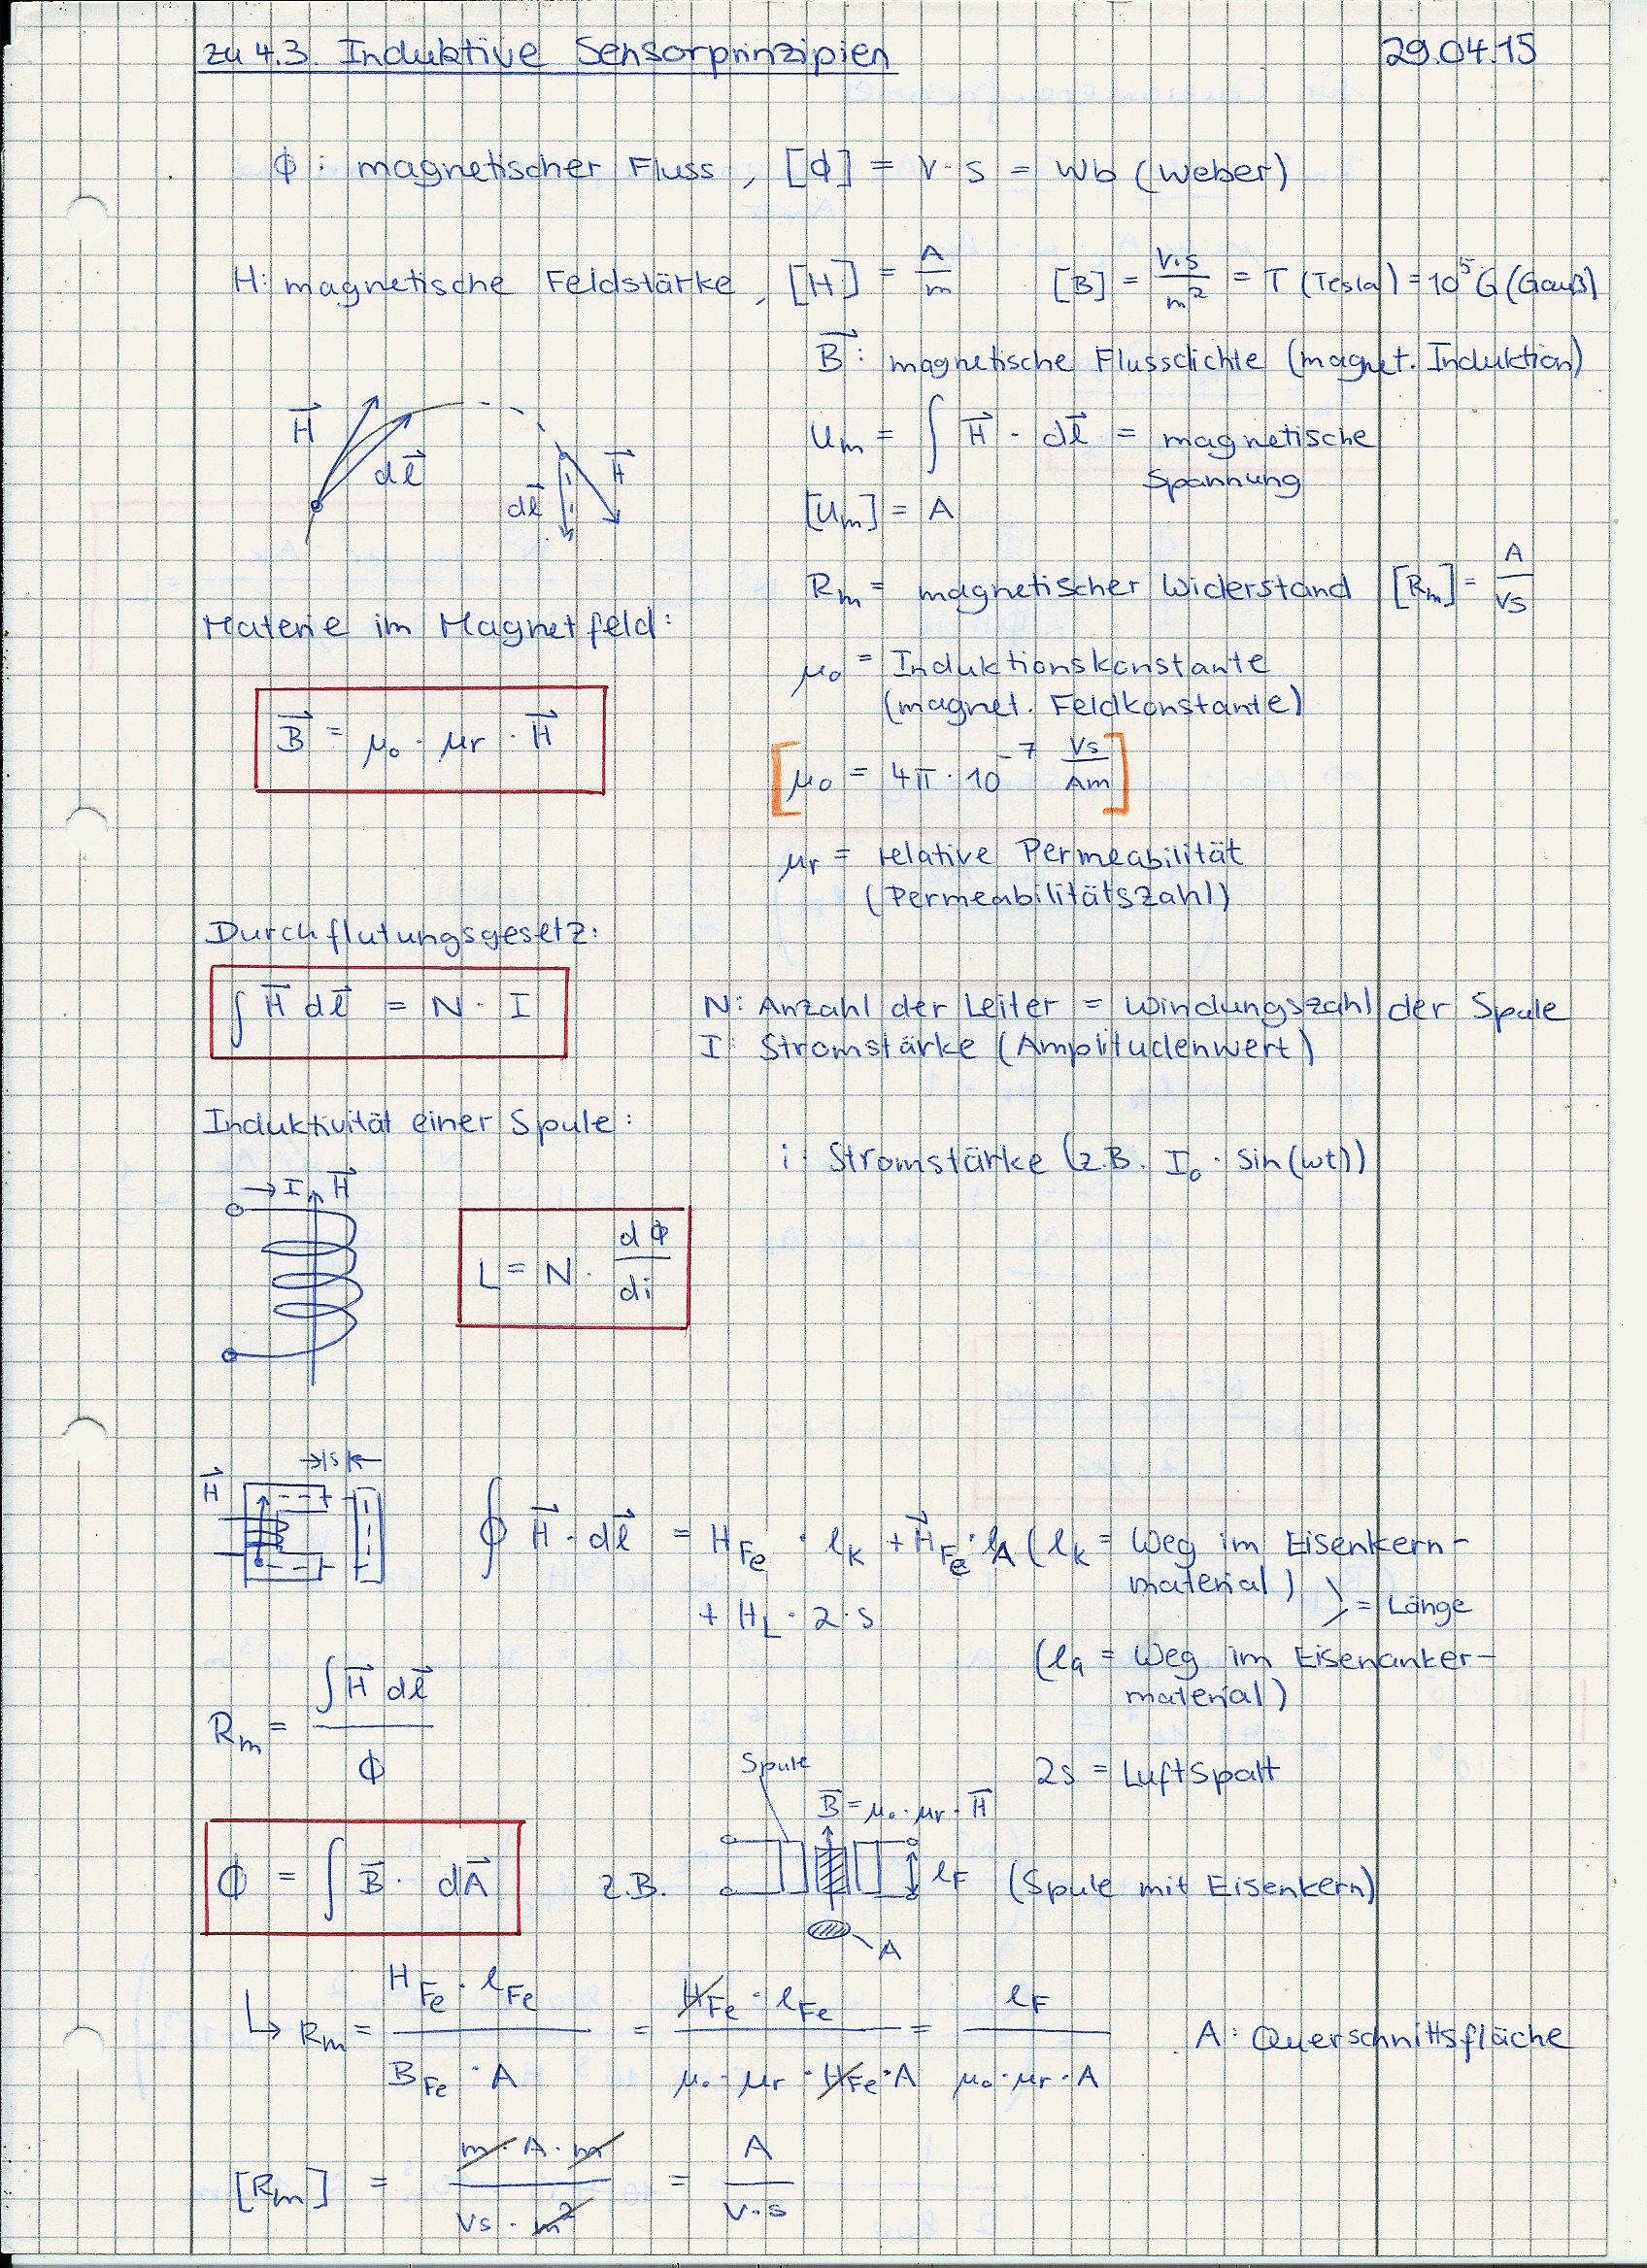 zu 4.3. Induktive Sensorprinzipien 29.04.15
ϕ: magnetischer Fluss, [ϕ] = V·s = Wb (Weber)
H: magnetische Feldstärke, [H] = A/m [B] = V·s/m² = T (Tesla) = 10⁵ G (Gauß)
B⃗: magnetische Flussdichte (magnet. Induktion)
H⃗ dl⃗ dl⃗ H⃗
Um = ∫ H⃗ · dl⃗ = magnetische
Spannung
[Um] = A
Rm = magnetischer Widerstand [Rm] = A/Vs
Materie im Magnetfeld:
μ₀ = Induktionskonstante
(magnet. Feldkonstante)
B⃗ = μ₀ · μr · H⃗
[μ₀ = 4π · 10⁻⁷ Vs/Am]
μr = relative Permeabilität
(Permeabilitätszahl)
Durchflutungsgesetz:
∫ H⃗ dl⃗ = N · I
N: Anzahl der Leiter = Windungszahl der Spule
I: Stromstärke (Amplitudenwert)
Induktivität einer Spule:
i: Stromstärke (z.B. I₀ · sin(ωt))
→ I H⃗
L = N · dϕ/di
→|s|←
H⃗
∮ H⃗ · dl⃗ = HFe · lK + H⃗Fe · lA (lK = Weg im Eisenkern-
material)
+ HL · 2 · s
} = Länge
(la = Weg im Eisenanker-
material)
Rm = ∫ H⃗ dl⃗ / ϕ
2s = Luftspalt
Spule
B⃗ = μ₀ · μr · H⃗
ϕ = ∫ B⃗ · dA⃗ z.B. lF (Spule mit Eisenkern)
A
↳ Rm = HFe · lFe / BFe · A = HFe · lFe / μ₀ · μr · HFe · A = lF / μ₀ · μr · A A: Querschnittsfläche
[Rm] = m · A · m / Vs · m² = A / V·s